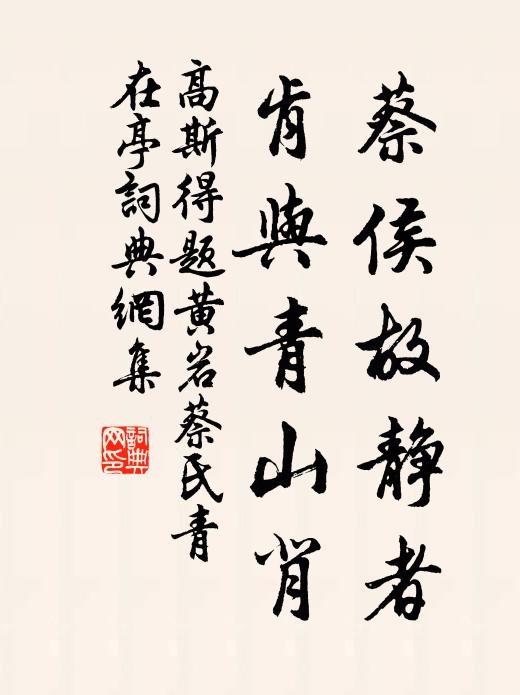 蔡侯故静者
肯與青山肖
高斯得题黄岩蔡氏青
在亭詞典網集
詞典
网印